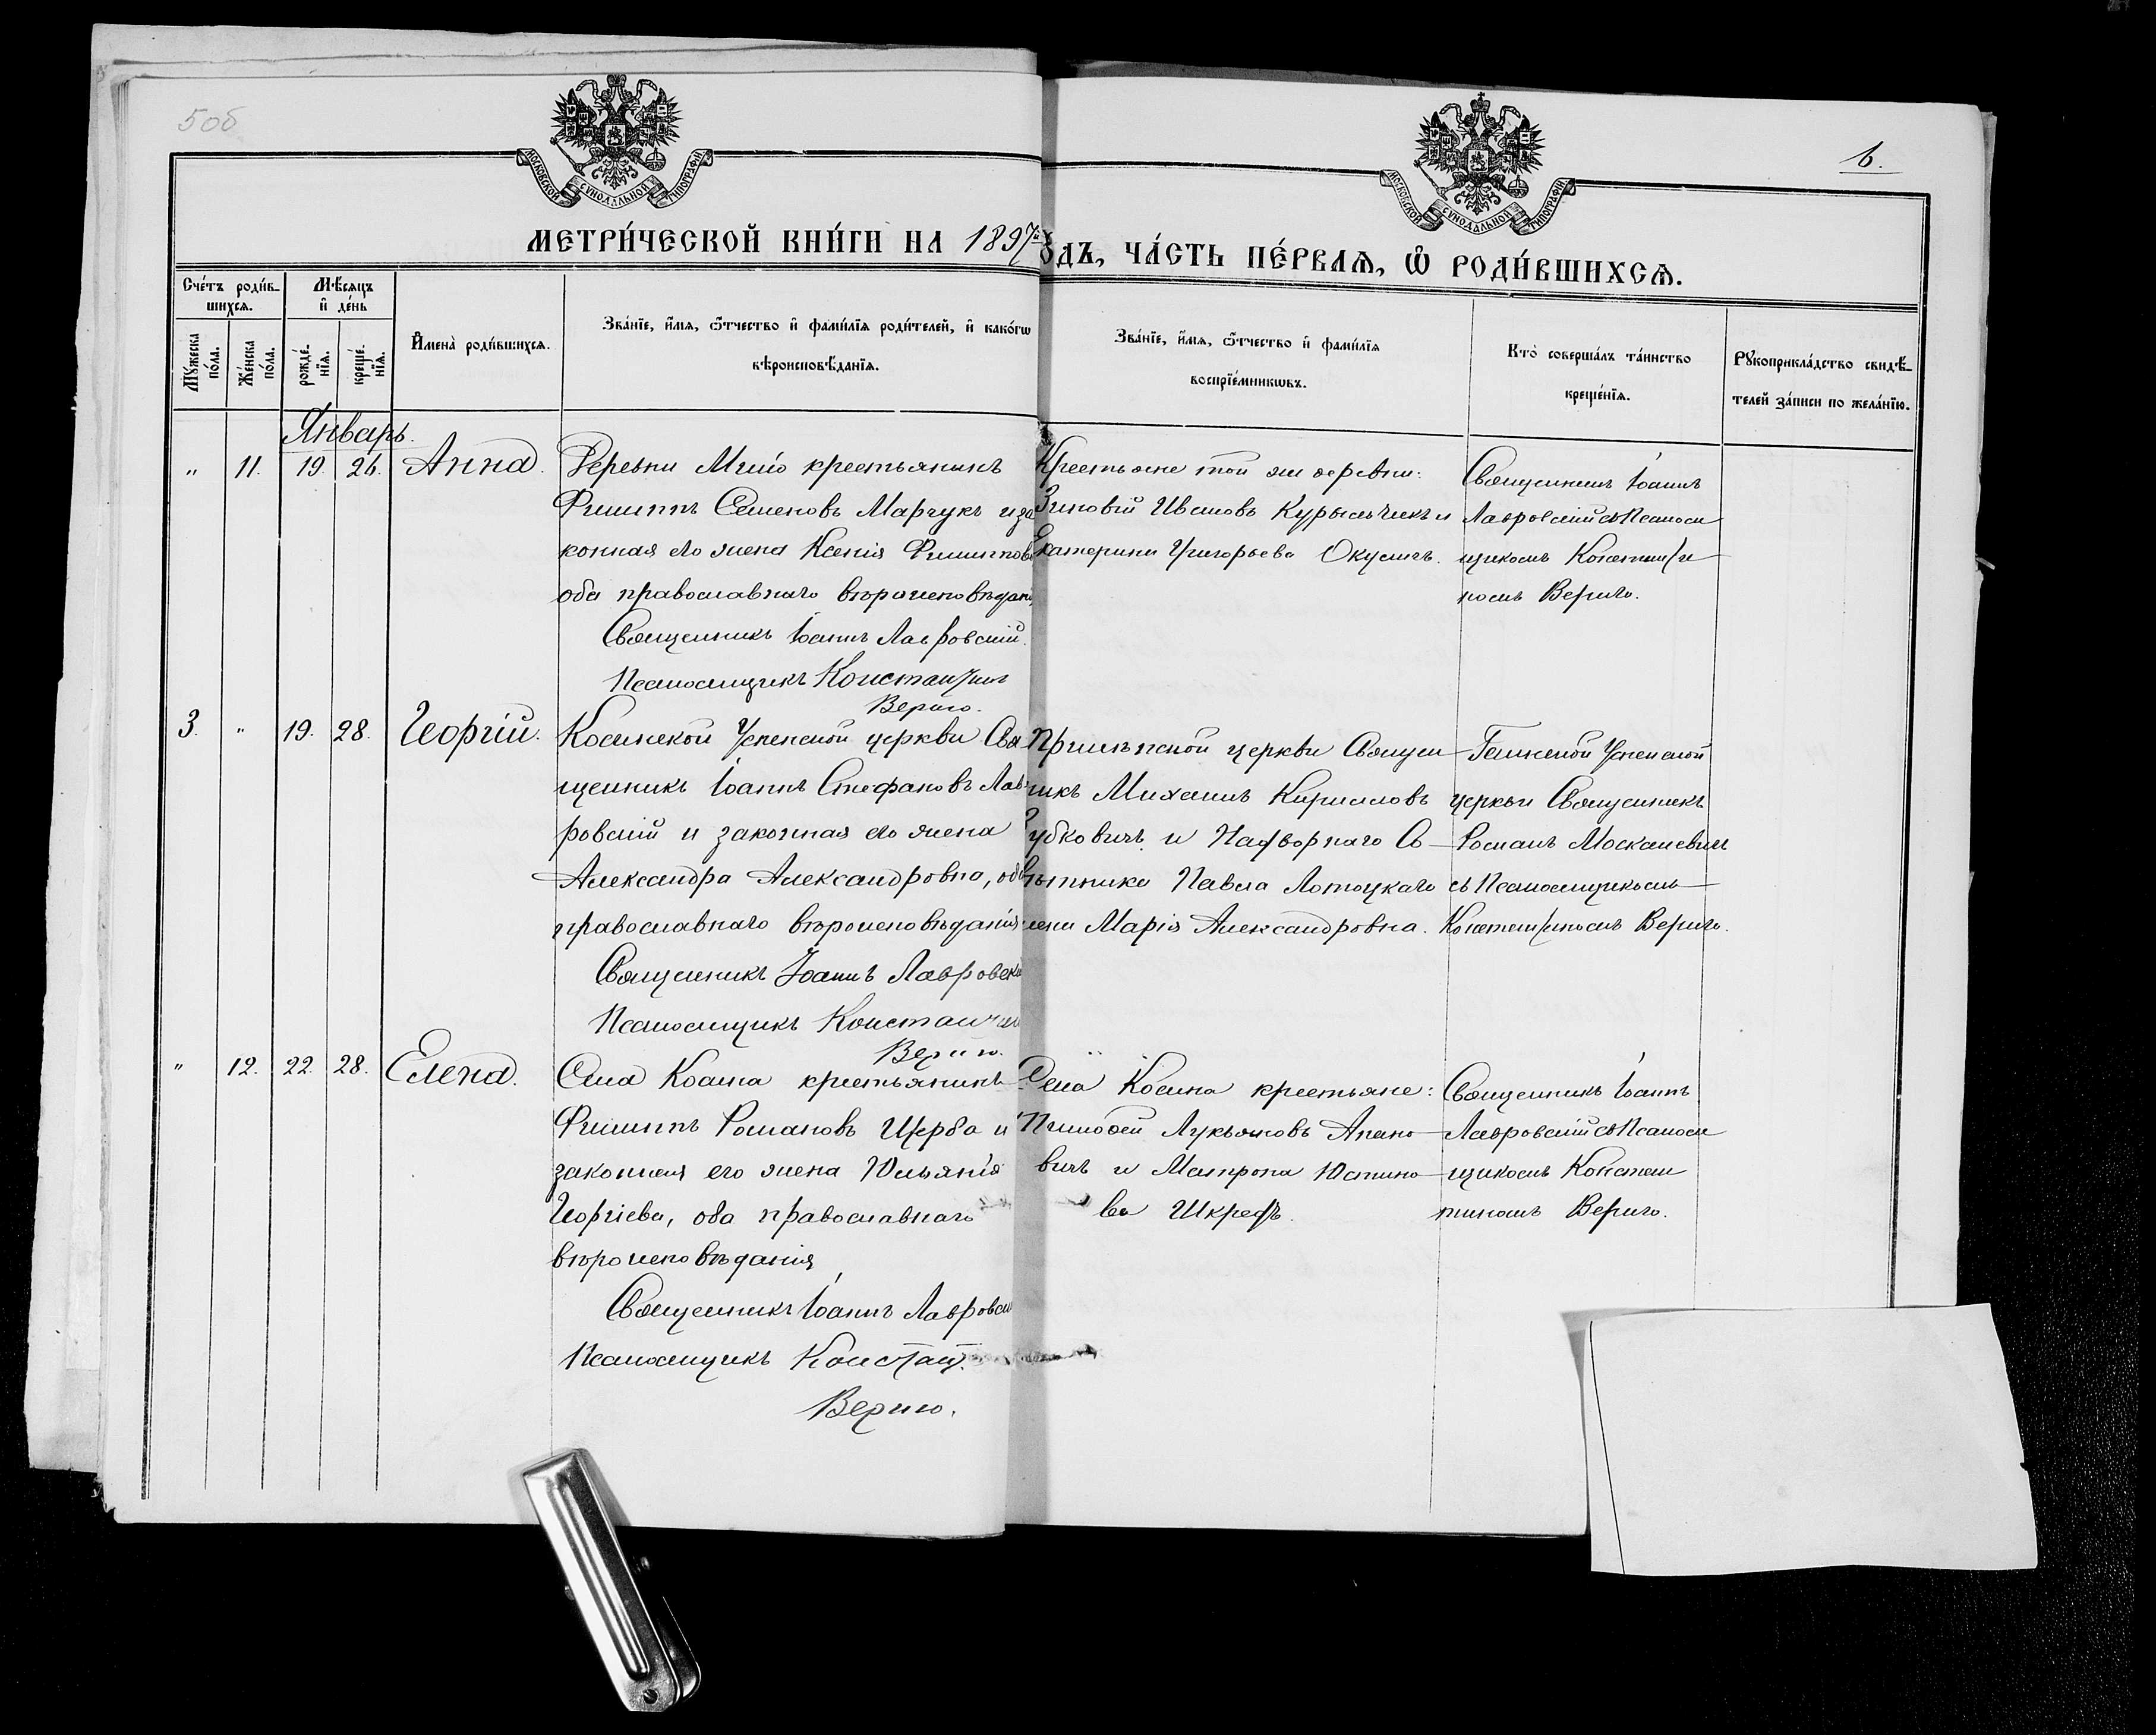 5об
6.
МОСКОВСКОЙ СѴНОДАЛЬНОЙ ТИПОГРАФІИ
МОСКОВСКОЙ СѴНОДАЛЬНОЙ ТИПОГРАФІИ
МЕТРИ́ЧЕСКОЙ КНИ́ГИ НА 1897й
ОДЪ, ЧА́СТЬ ПЕ́РВАѦ, Ѡ҆ РОДИ́ВШИХСѦ.
Сче́тъ роди́в-
шихсѧ.
Мꙋ́жеска
по́ла.
Же́нска
по́ла.
Мѣ́сѧцъ
и҆ де́нь
рожде́-
нїѧ.
креще́-
нїѧ.
И҆мена̀ роди́вшихсѧ.
Зва́нїе, и҆́мѧ, ѻ҆́тчество и҆ фами́лїѧ роди́телей, и҆ како́гѡ
вѣроисповѣ́данїѧ.
Зва́нїе, и҆́мѧ, ѻ҆́тчество и҆ фами́лїѧ
воспрїе́мникѡвъ.
Кто̀ соверша́лъ та́инство
креще́нїѧ.
Рꙋкоприкла́дство свидѣ́-
телей за́писи по жела́нїю.
Январь.
" 11. 19. 26. Анна.
Деревни крестьянинъ
Филиппъ Семеновъ Марчукъ и за
конная его жена Ксенія Филиппова
оба православнаго вѣроисповѣдан
Священникъ Іоаннъ Лавровскій.
Псаломщикъ Константинъ
Вериго.
Крестьяне той же деревни:
Зиновій Ивановъ Курыльчикъ и
Екатерина Григорьева
Священникъ Іоаннъ
Лавровскій съ Псалом
щикомъ Констан[ти
номъ Вериго.
3. " 19. 28. Георгій.
Косинской Успенской церкви Свя
щенникъ Іоаннъ Стефановъ Лав-
ровскій и законная его жена
Александра Александровна, оба
православнаго вѣроисповѣданія
Священникъ Іоаннъ Лавровскі
Псаломщикъ Константин
Вериго.
церкви Священ
никъ Михаилъ Кирилловъ
и Надворнаго Со-
вѣтника Павла Лотоцкаго
жена Марія Александровна.
Успенской
церкви Священникъ
Романъ Москалевичъ
съ Псаломщикомъ
Константиномъ Вериго.
" 12. 22. 28. Елена.
Села Косина крестьянинъ
Филиппъ Романовъ Щерба и
законная его жена Юліанія
Георгіева, оба православнаго
вѣроисповѣданія
Священникъ Іоаннъ Лавровск
Псаломщикъ Констант.
Вериго.
Села Косина крестьяне:
Тимоѳей Лукьяновъ Апано-
вичъ и Матрона Юстино-
ва
Священникъ Іоаннъ
Лавровскій съ Псалом
щикомъ Констан
тиномъ Вериго.